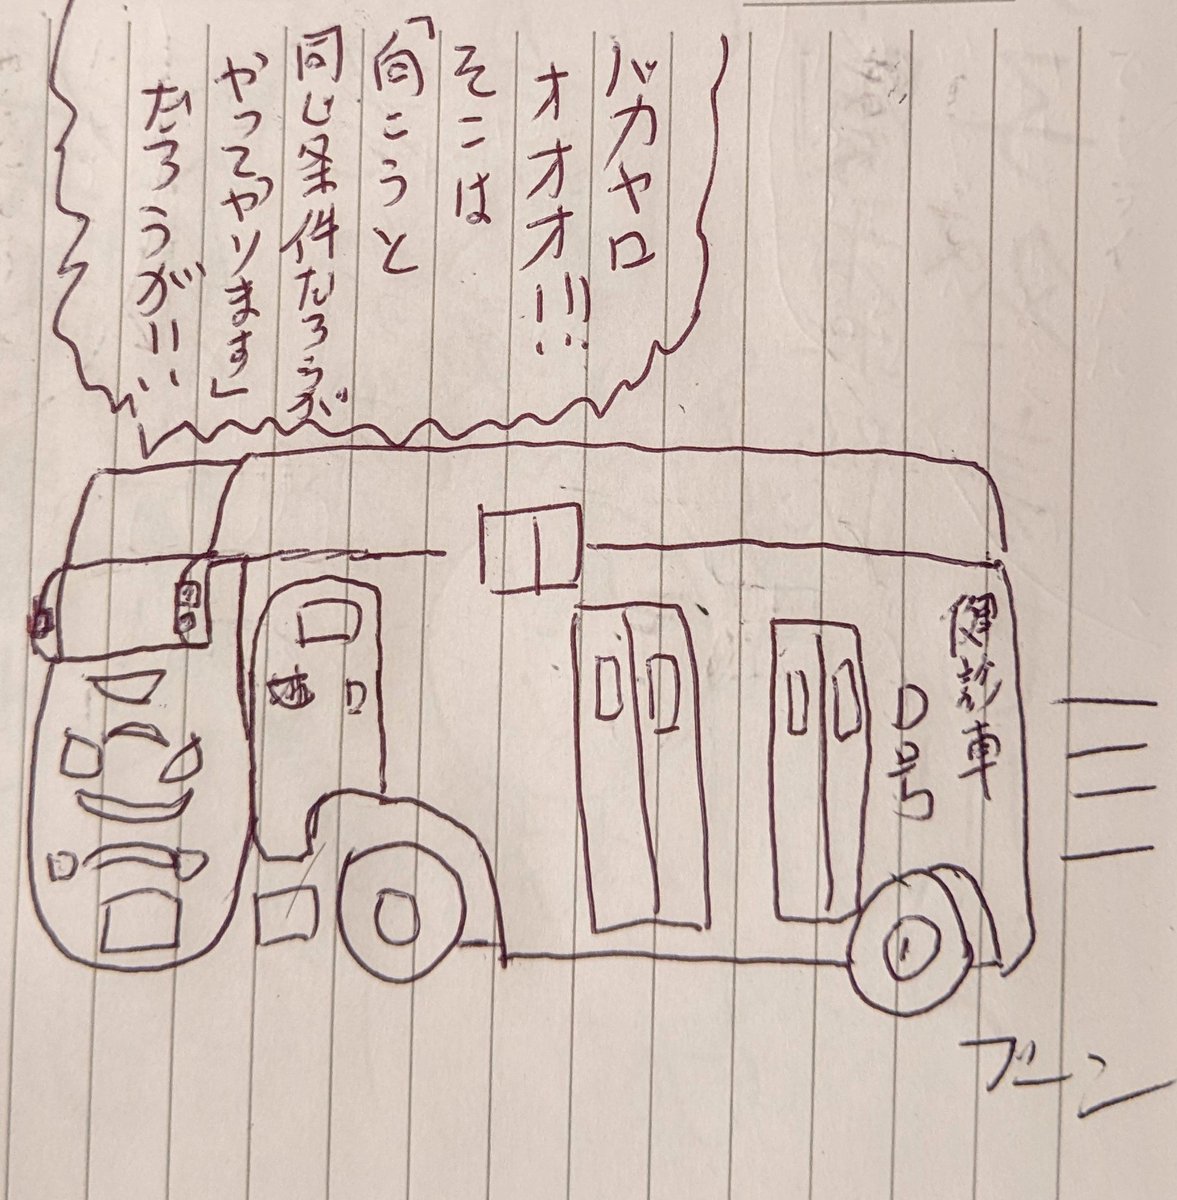 バカヤロ
オオオオ!!!
そこは
「向こうと
同じ条件だろうが
やってやります」
だろうが!!
健診車
D号
ブーン